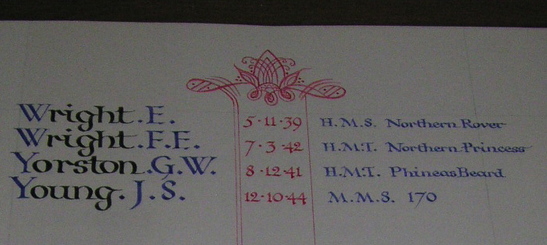 Wright. E. 5·11·39 H.M.S. Northern Rover
Wright. F.E. 7·3·42 H.M.T. Northern Princess
Yorston. G.W. 8·12·41 H.M.T. Phineas Beard
Young. J.S. 12·10·44 M.M.S. 170